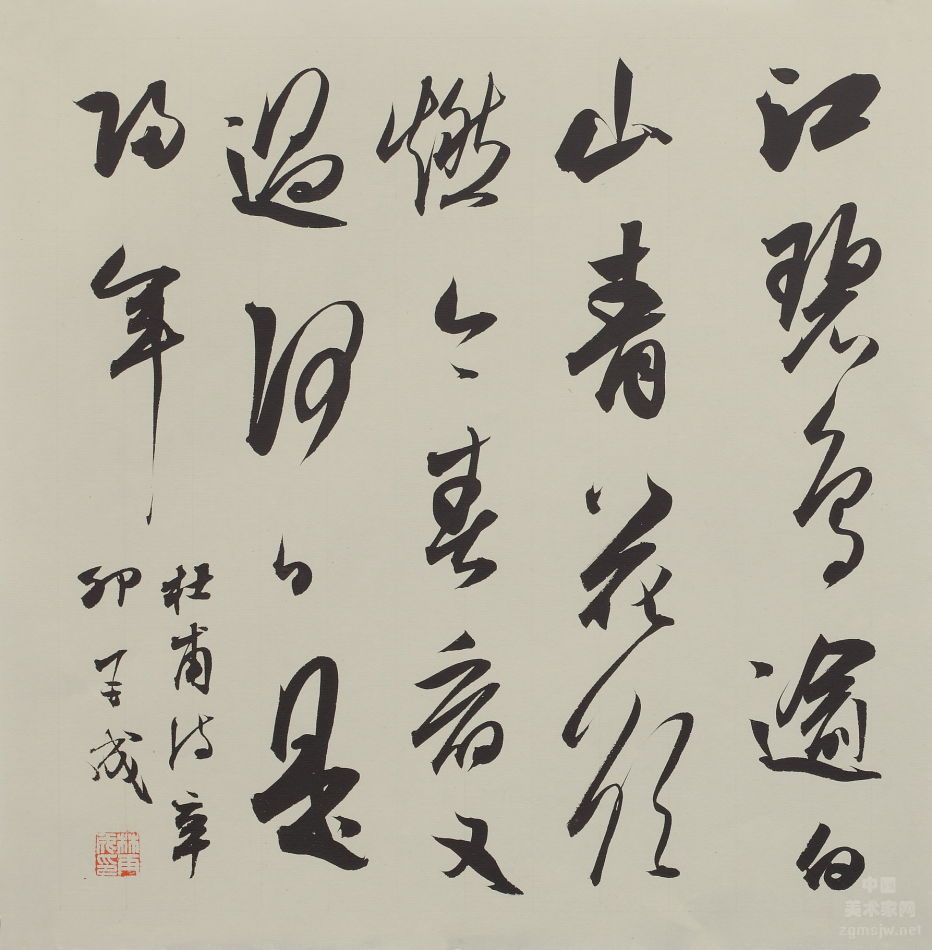 江碧鳥逾白
山青花欲
燃今春看又
過何日是
歸年
杜甫詩辛
卯再成
林再成印
中国
美术家网
zgmsjw.net